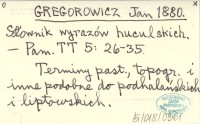 GREGOROWICZ Jan 1880.
Słownik wyrazów huculskich.
— Pam. TT 5: 26-35.
Terminy past., topogr. i
inne podobne do podhalańskich
i liptowskich.